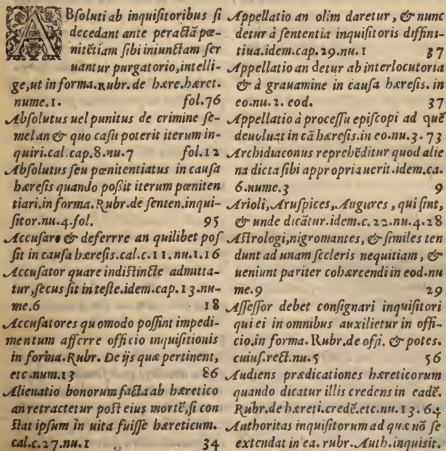 ABsoluti ab inquisitoribus si
decedant ante peractã pœ-
nitẽtiam sibi iniunctam ser
uantur purgatorio, intelli-
ge, ut in forma. Rubr. de hære. hæret.
nume. 1. fol. 76
Absolutus uel punitus de crimine se-
mel an & quo casu poterit iterum in-
quiri. cal. cap. 8. nu. 7 fol. 12
Absolutus seu pœnitentiatus in causa
hæresis quando poßit iterum pœniten
tiari. in forma. Rubr. de senten. inqui-
sitor. nu. 4. fol. 95
Accusare & deferrre an quilibet pos
sit in causa hæresis. cal. c. 11. nu. 1. 16
Accusator quare indistincte admitta-
tur, secus sit in teste. idem. cap. 13. nu-
me. 6 18
Accusatores quomodo possint impedi-
mentum afferre officio inquisitionis
in forma. Rubr. De ijs quæ pertinent,
etc. num. 13 86
Alienatio bonorum facta ab hæretico
an retractetur post eius mortẽ, si con
stat ipsum in uita fuisse hæreticum.
cal. c. 27. nu. 1 34
Appellatio an olim daretur, & nunc
detur à sententia inquisitoris diffini-
tiua. idem. cap. 29. nu. 1 37
Appellatio an detur ab interlocutoria
& à grauamine in causa hæresis. in
eo. nu. 2. eod. 37
Appellatio à processu episcopi ad quẽ
deuoluat in cã hæresis. in eo. nu. 3. 73
Archidiaconus reprehẽditur quod alie
na dicta sibi appropriauerit. idem. ca.
6. nume. 3 9
Arioli, Aruspices, Augures, qui sint,
& unde dicãtur. idem. c. 22. nu. 4. 28
Astrologi, nigromantes, & similes ten
dunt ad unam sceleris nequitiam, &
ueniunt pariter cohærcendi in eod. nu
me. 9 29
Assessor debet consignari inquisitori
qui ei in omnibus auxilietur in offi-
cio. in forma. Rubr. de offi. & potes.
cuius. rect. nu. 5 56
Audiens prædicationes hæreticorum
quando dicatur illis credens in eadẽ.
Rubr. de hæreti. credẽ. etc. nu. 13. 64
Authoritas inquisitorum ad quæ nõ se
extendat in ea. rubr. Auth. inquisit.